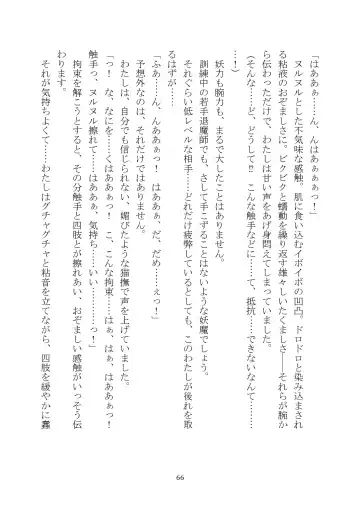 「はああぁ……ん、んはあぁぁっ！」
ヌルヌルとした不気味な感触。肌に食い込むイボイボの凹凸。ドロドロと染み込まされ
る粘液のおぞましさに。ビクビクと蠕動を繰り返す雄々しいたくましさ――それらが腕か
ら伝わるだけで、わたしは甘い声をあげ身悶えてしまっていました。
（そんな……ど、どうして!?　こんな触手などに……て、抵抗……できないなんて……
…！）
妖力も腕力も、まるで大したことはありません。
訓練中の若手退魔師でも、さして手こずることはないような妖魔でしょう。
それぐらい低レベルな相手……どれだけ疲弊しているとしても、このわたしが後れを取
るはずが……。
「ふああ……ん、んああぁっ！　はああぁ、だ、だめ……ぇっ」
予想外なのは、それだけではありません。
わたしは、自分でも信じられない、媚びたような猫撫で声を上げていました。
「っ！　な、なにを……くはああぁっ！　こ、こんな拘束……はぁ、はぁ、はああぁっ！
触手っ、ヌルヌル擦れて……はああぁ、気持ち……いい…………っ！」
拘束を解こうとすると、その分触手と四肢とが擦れあい、おぞましい感触がいっそう伝
わります。
それが気持ちよくて……わたしはグチャグチャと粘音を立てながら、四肢を緩やかに蠢
66